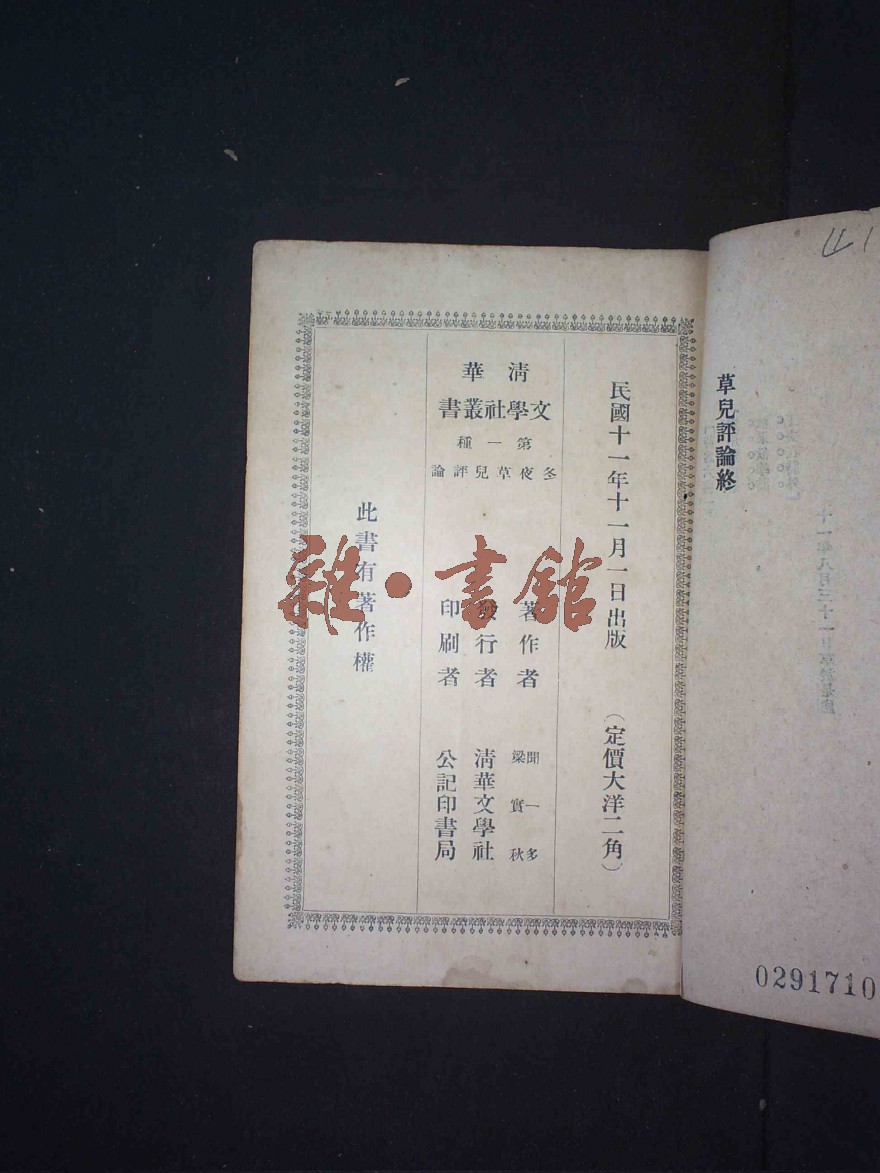 草兒評論終
0291710
民國十一年十一月一日出版 （定價大洋二角）
清華
文學社叢書
第一種
冬夜草兒評論
著作者 聞一多
梁實秋
發行者 清華文學社
印刷者 公記印書局
此書有著作權
雜·書館